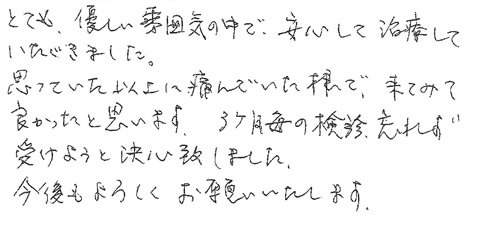 とても、優しい雰囲気の中で、安心して治療して
いただきました。
思っていた以上に痛んでいた様で、来てみて
良かったと思います。3ヶ月毎の検診、忘れず
受けようと決心致しました。
今後もよろしくお願いいたします。